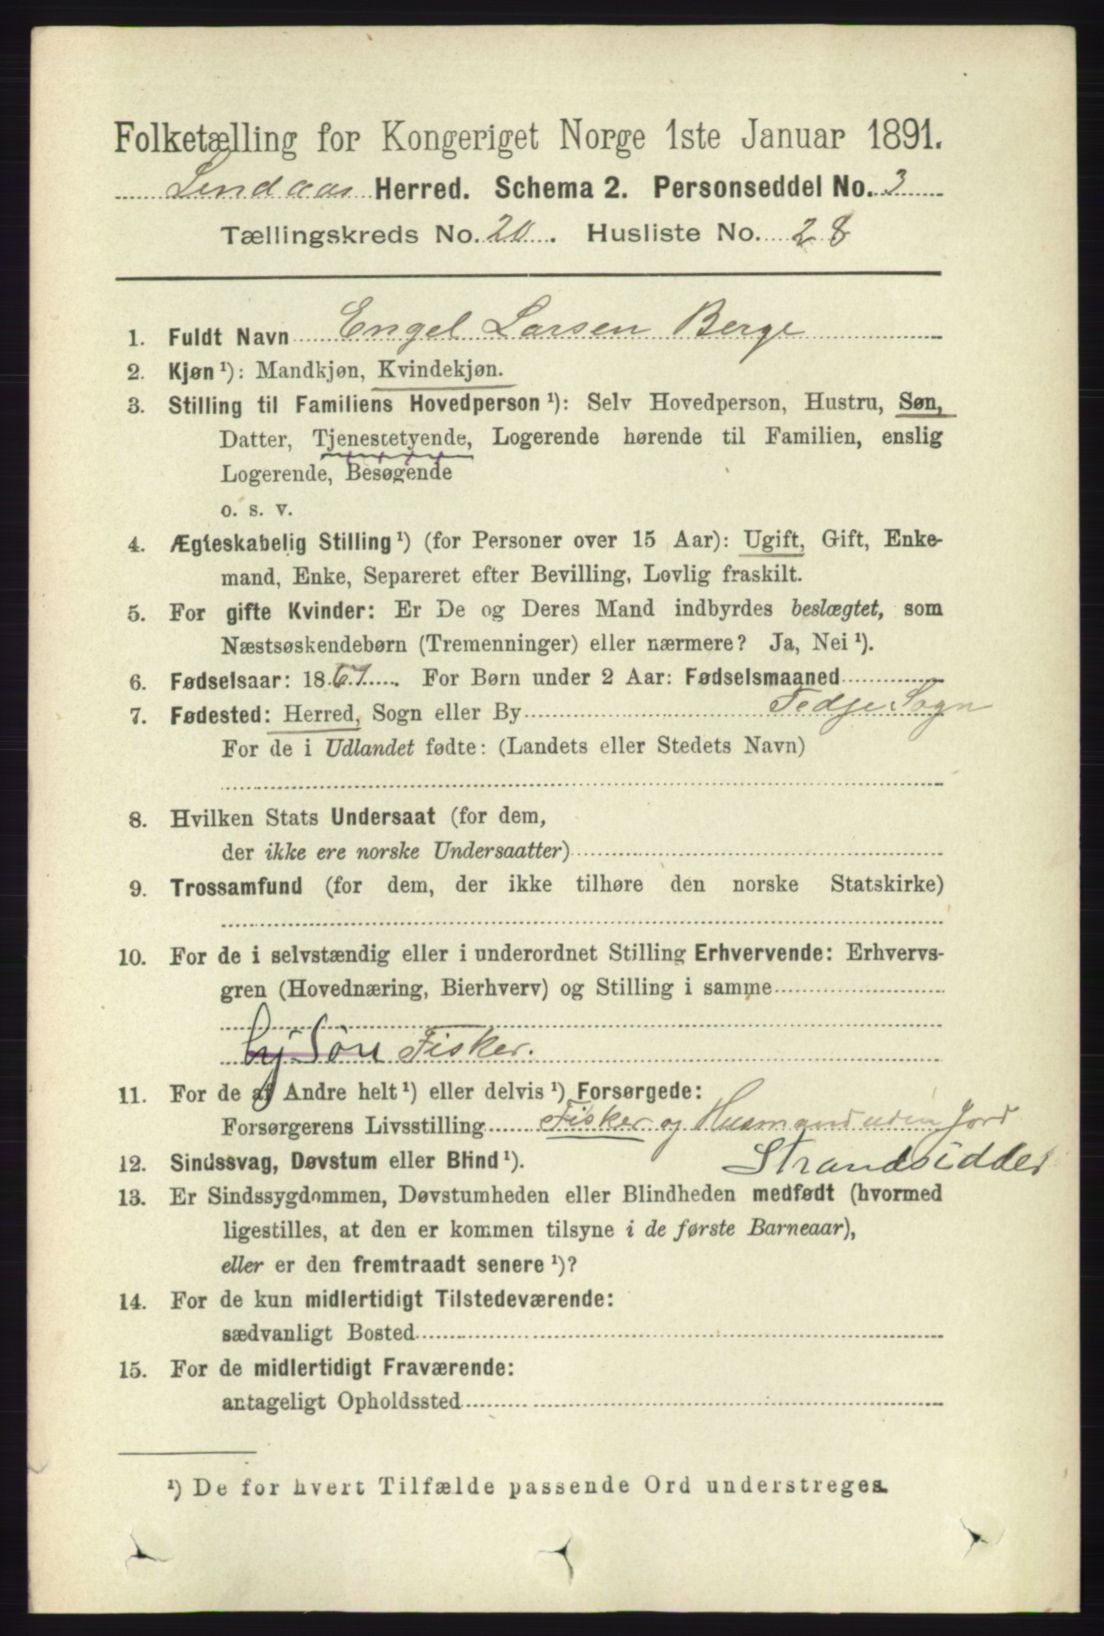 Folketælling for Kongeriget Norge 1ste Januar 1891.
Lindaas Herred. Schema 2. Personseddel No. 3
Tællingskreds No. 20. Husliste No. 28
1. Fuldt Navn Engel Larsen Berge
2. Kjøn ¹): Mandkjøn, Kvindekjøn.
3. Stilling til Familiens Hovedperson ¹): Selv Hovedperson, Hustru, Søn,
Datter, Tjenestetyende, Logerende hørende til Familien, enslig
Logerende, Besøgende
o. s. v.
4. Ægteskabelig Stilling ¹) (for Personer over 15 Aar): Ugift, Gift, Enke-
mand, Enke, Separeret efter Bevilling, Lovlig fraskilt.
5. For gifte Kvinder: Er De og Deres Mand indbyrdes beslægtet, som
Næstsøskendebørn (Tremenninger) eller nærmere? Ja, Nei ¹).
6. Fødselsaar: 1867. For Børn under 2 Aar: Fødselsmaaned
7. Fødested: Herred, Sogn eller By Fedje Sogn
For de i Udlandet fødte: (Landets eller Stedets Navn)
8. Hvilken Stats Undersaat (for dem,
der ikke ere norske Undersaatter)
9. Trossamfund (for dem, der ikke tilhøre den norske Statskirke)
10. For de i selvstændig eller i underordnet Stilling Erhvervende: Erhvervs-
gren (Hovednæring, Bierhverv) og Stilling i samme
Søn Fisker.
11. For de af Andre helt ¹) eller delvis ¹) Forsørgede:
Forsørgerens Livsstilling Fisker og Husmand uden Jord
Strandsidder
12. Sindssvag, Døvstum eller Blind ¹).
13. Er Sindssygdommen, Døvstumheden eller Blindheden medfødt (hvormed
ligestilles, at den er kommen tilsyne i de første Barneaar),
eller er den fremtraadt senere ¹)?
14. For de kun midlertidigt Tilstedeværende:
sædvanligt Bosted
15. For de midlertidigt Fraværende:
antageligt Opholdssted
¹) De for hvert Tilfælde passende Ord understreges.